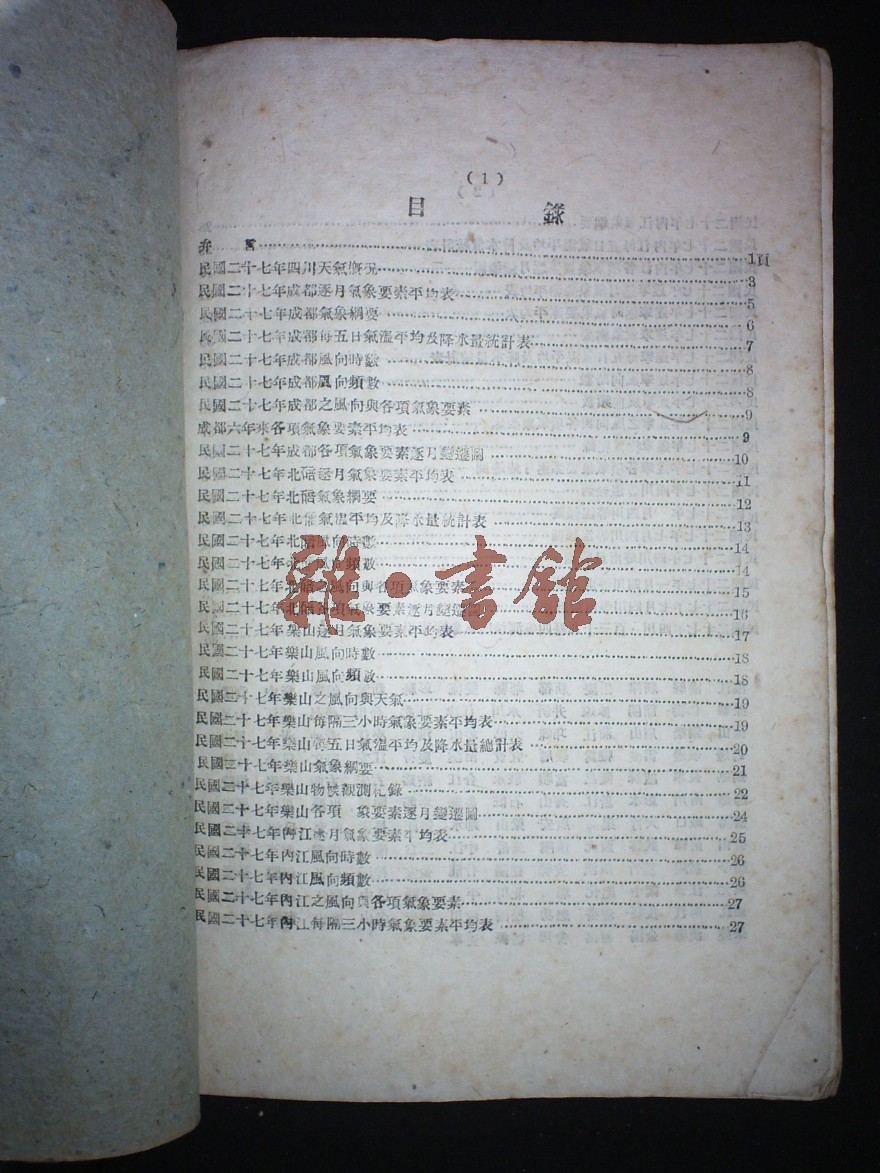 (1)
目錄
弁言……1頁
民國二十七年四川天氣概況……3
民國二十七年成都逐月氣象要素平均表……5
民國二十七年成都氣象綱要……6
民國二十七年成都每五日氣溫平均及降水量統計表……7
民國二十七年成都風向時數……8
民國二十七年成都風向頻數……8
民國二十七年成都之風向與各項氣象要素……9
成都六年來各項氣象要素平均表……9
民國二十七年成都各項氣象要素逐月變遷圖……10
民國二十七年北碚逐月氣象要素平均表……11
民國二十七年北碚氣象綱要……12
民國二十七年北碚氣溫平均及降水量統計表……13
民國二十七年北碚風向時數……14
民國二十七年北碚風向頻數……14
民國二十七年北碚之風向與各項氣象要素……15
民國二十七年北碚各項氣象要素逐月變遷圖……16
民國二十七年樂山逐月氣象要素平均表……17
民國二十七年樂山風向時數……18
民國二十七年樂山風向頻數……18
民國二十七年樂山之風向與天氣……19
民國二十七年樂山每隔三小時氣象要素平均表……19
民國二十七年樂山每五日氣溫平均及降水量總計表……20
民國二十七年樂山氣象綱要……21
民國二十七年樂山物候觀測紀錄……22
民國二十七年樂山各項 象要素逐月變遷圖……24
民國二十七年內江逐月氣象要素平均表……25
民國二十七年內江風向時數……26
民國二十七年內江風向頻數……26
民國二十七年內江之風向與各項氣象要素……27
民國二十七年內江每隔三小時氣象要素平均表……27
雜·書館